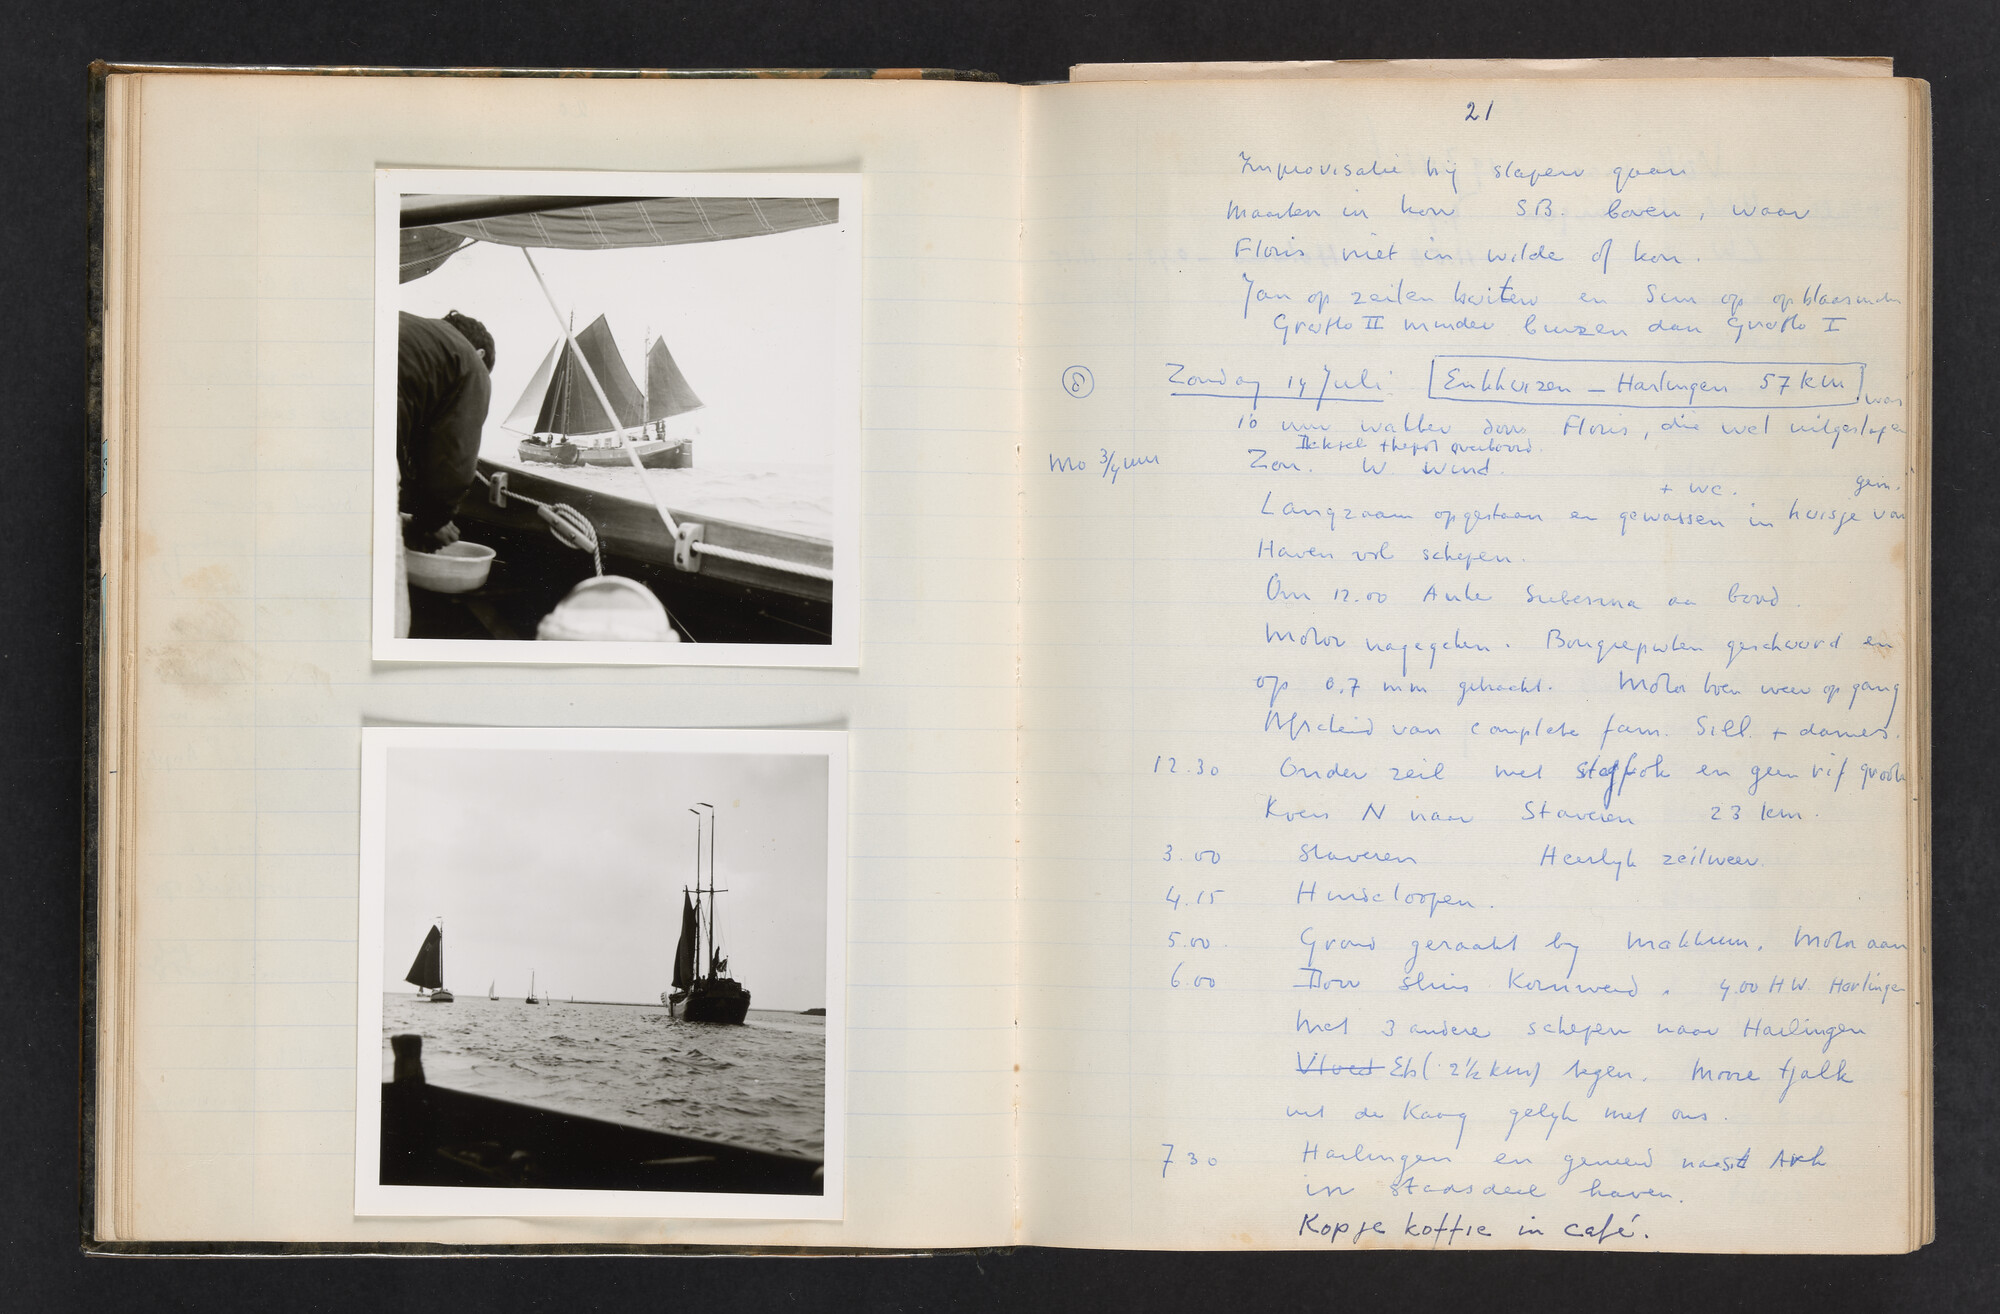 21
Improvisatie bij slapen gaan
Maarten in kooi SB. boven, waar
Floris niet in wilde of kon.
Jan op zeilen buiten en Sim op opblaasmatr
Grutto II minder luizen dan Grutto I
8 Zondag 14 Juli. Enkhuizen – Harlingen 57 km
was
10 uur wakker door Floris, die wel uitgeslapen
Deksel thepot overboord.
Mo 3/4 uur Zon. W wind.
+ wc. gem.
Langzaam opgestaan en gewassen in huisje van
Haven vol schepen.
Om 12.00 Anke aan boord.
Motor nagegeken. Bougiepunten geschuurd en
op 0,7 mm gebracht. Motor toen weer op gang
Afscheid van complete fam. Sill. + dames.
12.30 Onder zeil met stagfok en geen rif grootz
Koers N naar Staveren 23 km.
3.00 Staveren Heerlijk zeilweer.
4.15 Hindeloopen.
5.00. Grond geraakt bij Makkum. Motor aan
6.00 Door sluis Kornwerd. 4.00 HW. Harlingen
Met 3 andere schepen naar Harlingen
Vloed Eb (2½ km) tegen. Mooie tjalk
uit de Kaag gelijk met ons.
7 30 Harlingen en gemeerd naast Ark
in stadsdeel haven.
Kopje koffie in café.